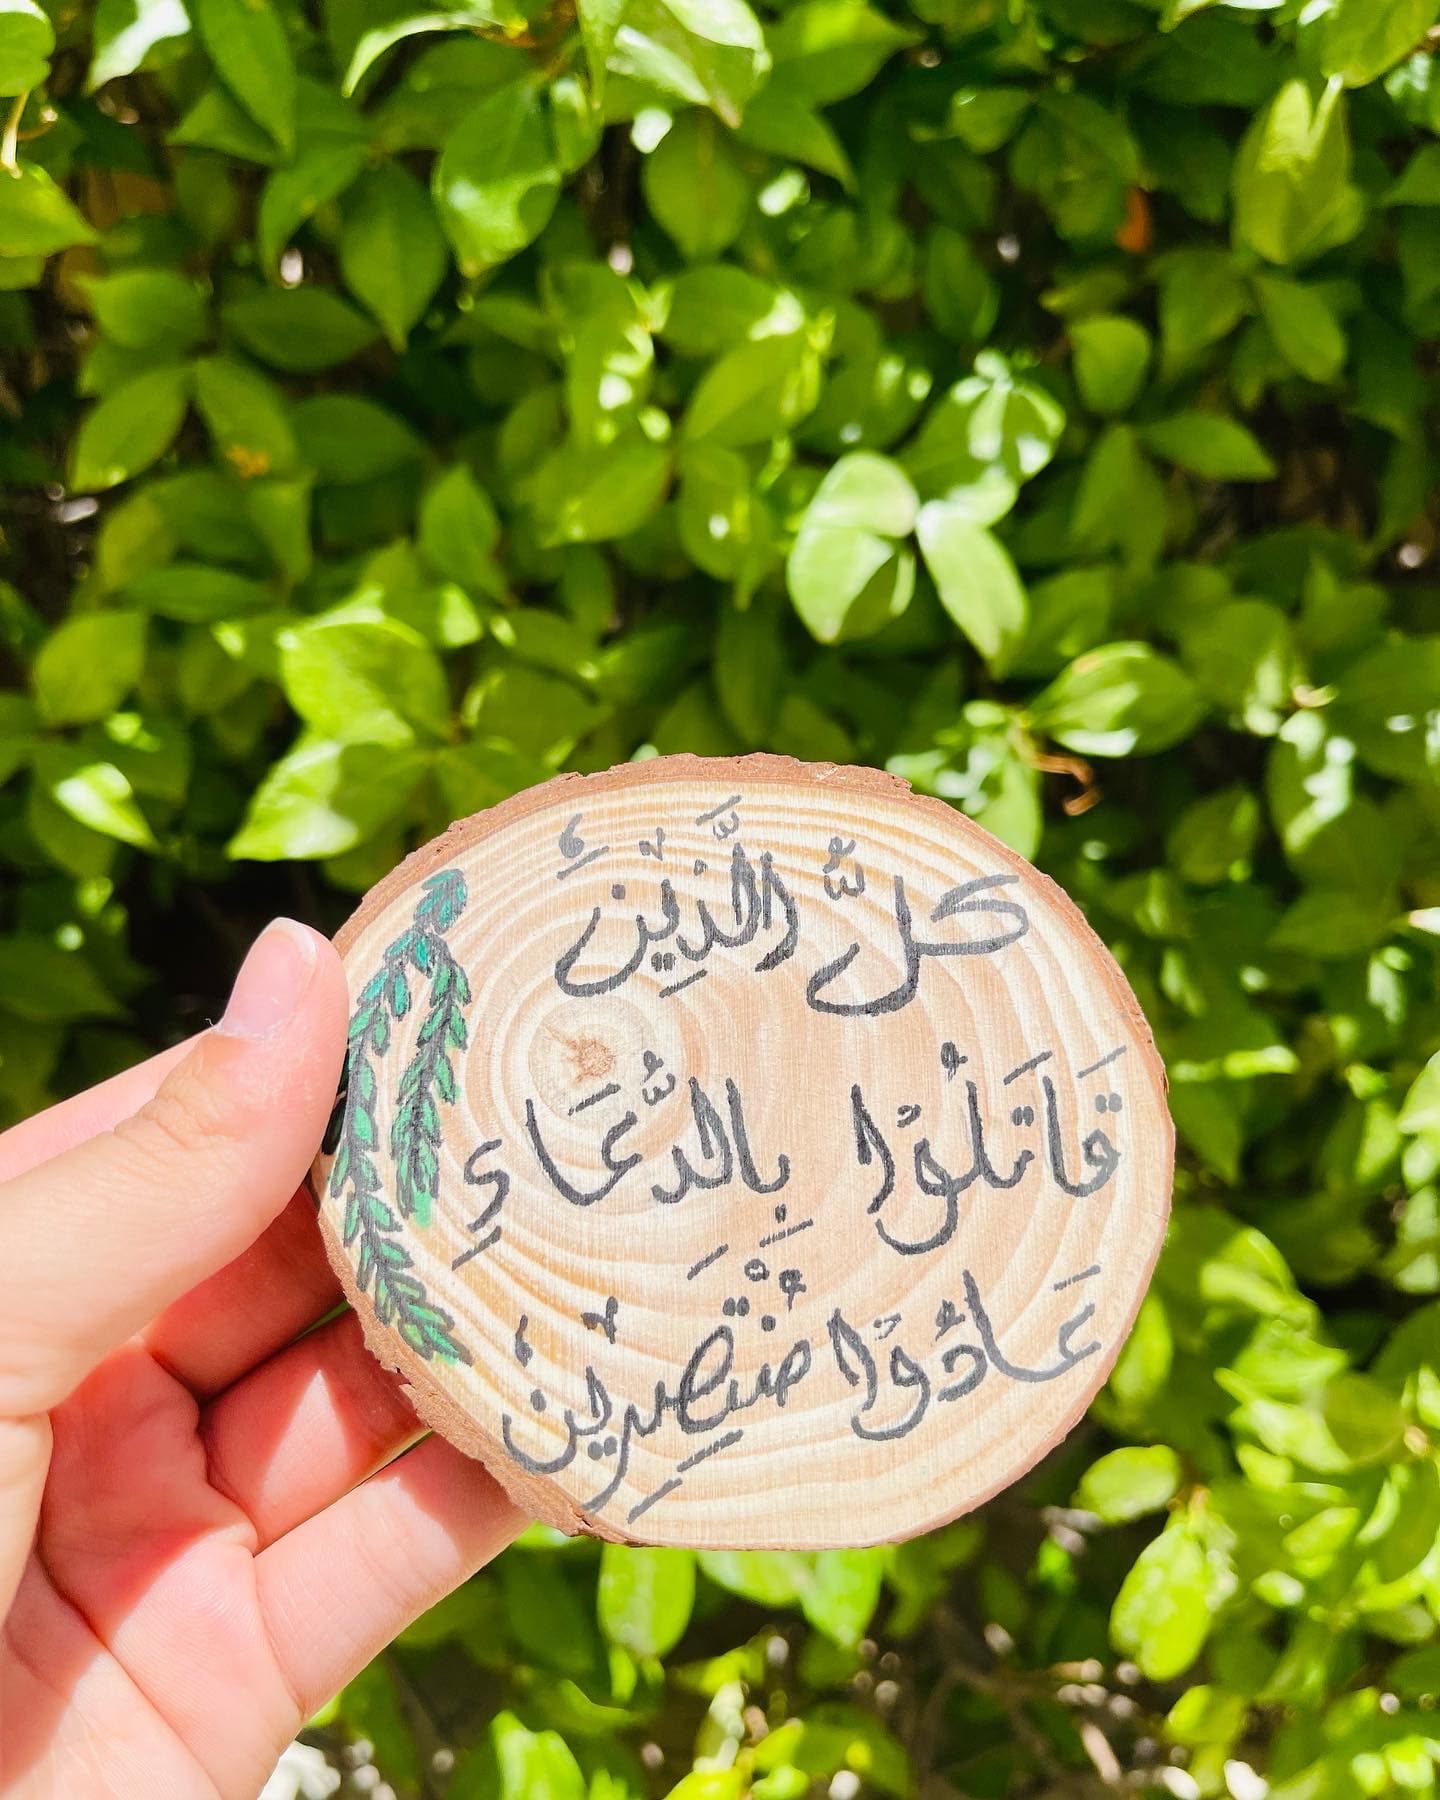 كلُّ الَّذِيْنَ
قَاتَلُوْا بِالدُّعَاءِ
عَادُوْا مُنْتَصِرِيْنَ